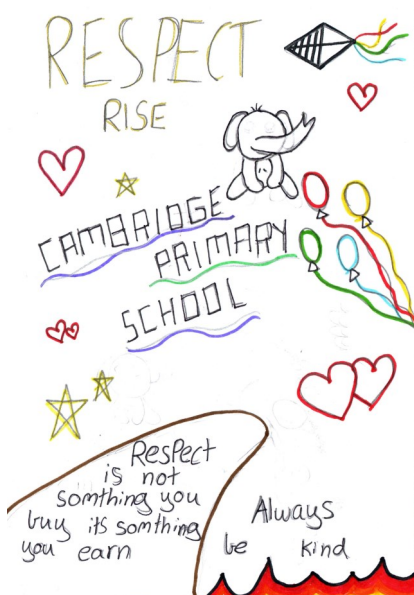 RESPECT
RISE
CAMBRIDGE
PRIMARY
SCHOOL
Respect
is not
somthing you
buy its somthing
you earn
Always
be kind